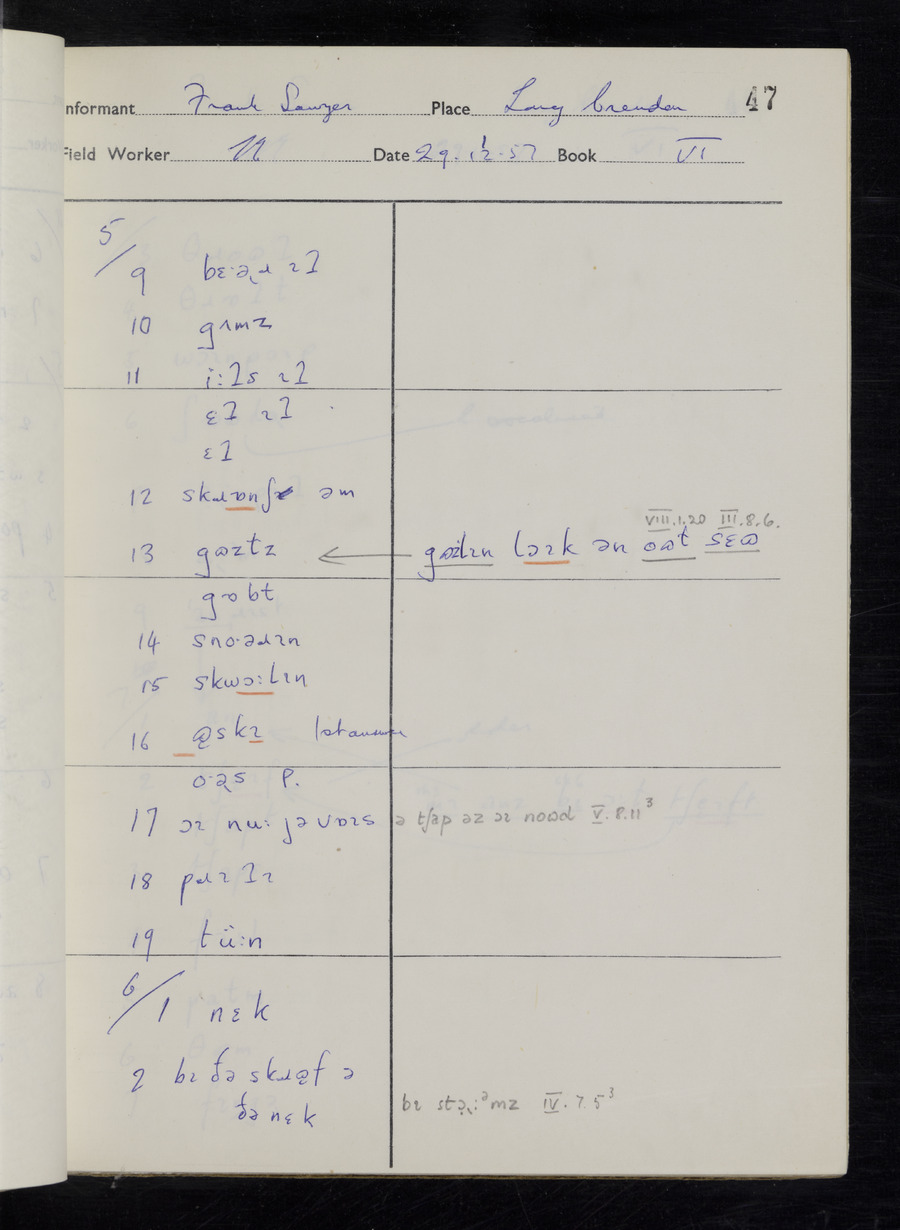 nformant Frank Sawyer Place Long Crendon 47
Field Worker Date 29.12.57 Book VI
5/
9 bɛ·ə˞ɹ ɪl
10 gʌmz
11 i:ls ɪl
ɛl ɪl
ɛl
12 skɹɒnʃ əm
13 gɷztz ← gɷzlɪn lɔɪk ən oɷt sɛɷ VIII.1.20 III.8.6.
gɒbt
14 sno·əɹɪn
15 skwɔ:lɪn
16 askɪ
o·əs p.
17 ɔɪ nu: jə vɒɪs ə tʃap əz ɔɪ noɷd V.8.11³
18 pɹɪlɪ
19 tü:n
6/1 nɛk
2 bɪ ðə skɹaf ə
ðə nɛk bɪ stə:ᵊmz IV.7.5³